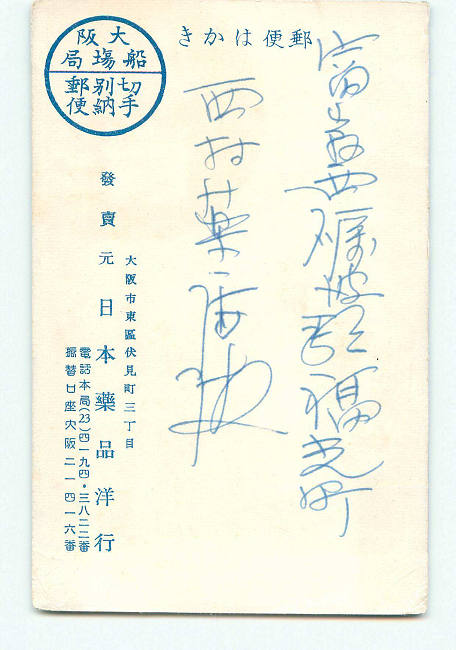 郵便はかき
大阪
船塲局
切手
別納
郵便
富山県西砺波郡福光町
西村薬
大阪市東區伏見町三丁目
發賣元日本藥品洋行
電話本局(23)四一九四・三八二二番
振替口座大阪二一四一六番